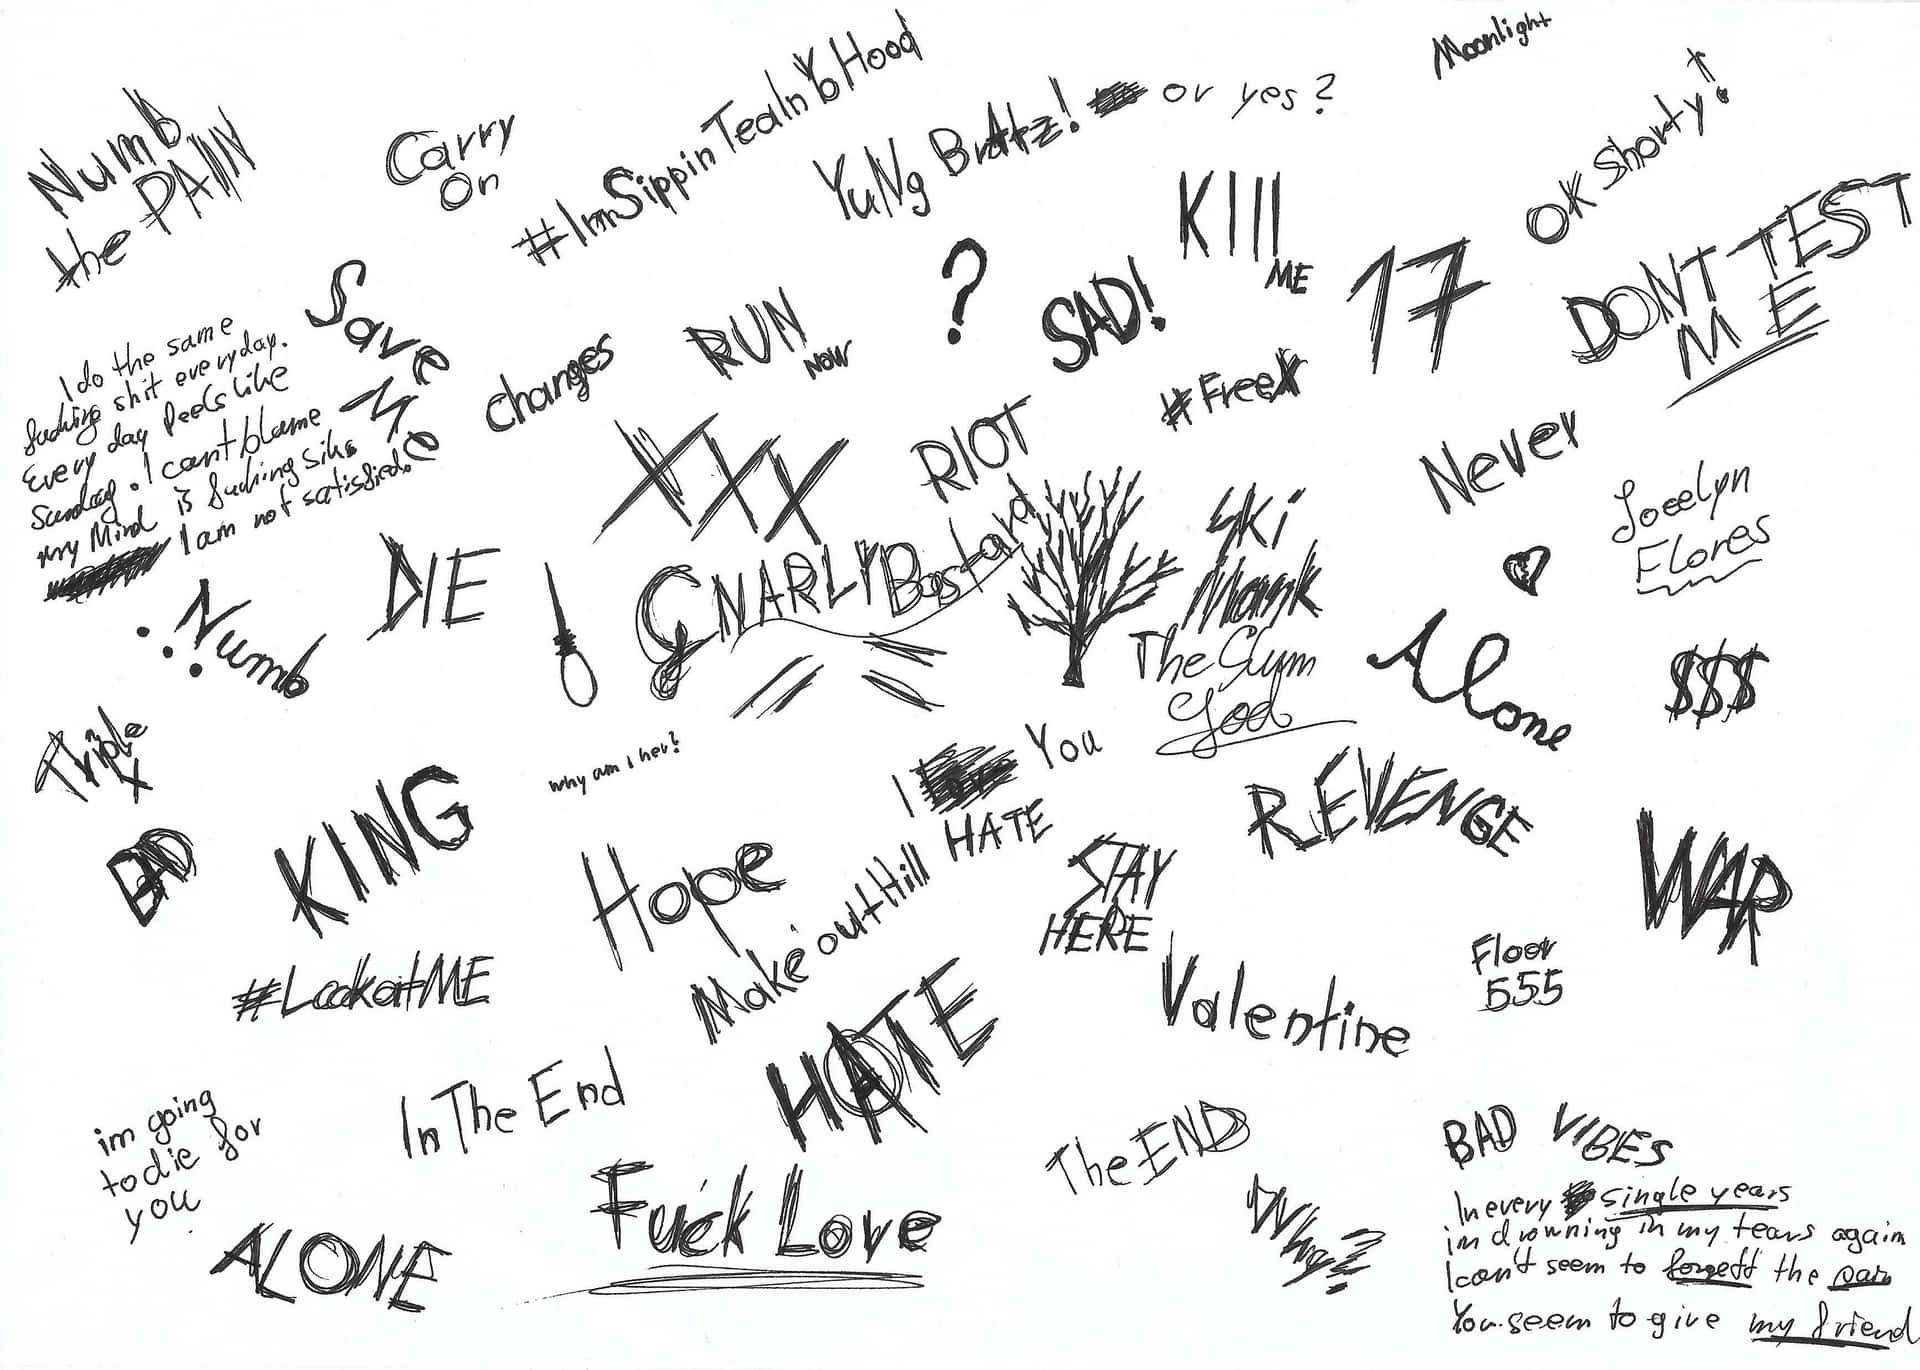 Moonlight
Numb
the PAIN
Carry
On
#ImSippinTeaInYoHood
YuNg BrAtz! or yes?
OK Shorty!
KIll
ME
17
DONT TEST
ME
?
SAD!
Save
Me
RUN
NOW
changes
#FreeX
I do the same
fucking shit everyday.
Every day feels like
Sunday. I cant blame
my Mind is fucking sik.
I am not satisfied.
XXX
RIOT
Never
Jocelyn
Flores
DIE
GNARLY Bastard
Ski
Mask
The Slum
god
Numb
Alone
$$$
Triple
X
why am i her?
I You
HATE
REVENGE
BAD
KING
Hope
Make out Hill
STAY
HERE
WAR
#LookatME
Valentine
Floor
555
HATE
In The End
im going
to die for
you
The END
BAD VIBES
In every single years
im drowning in my tears again
I can't seem to forgett the pain
You seem to give my friend
Fuck Love
ALONE
Why?